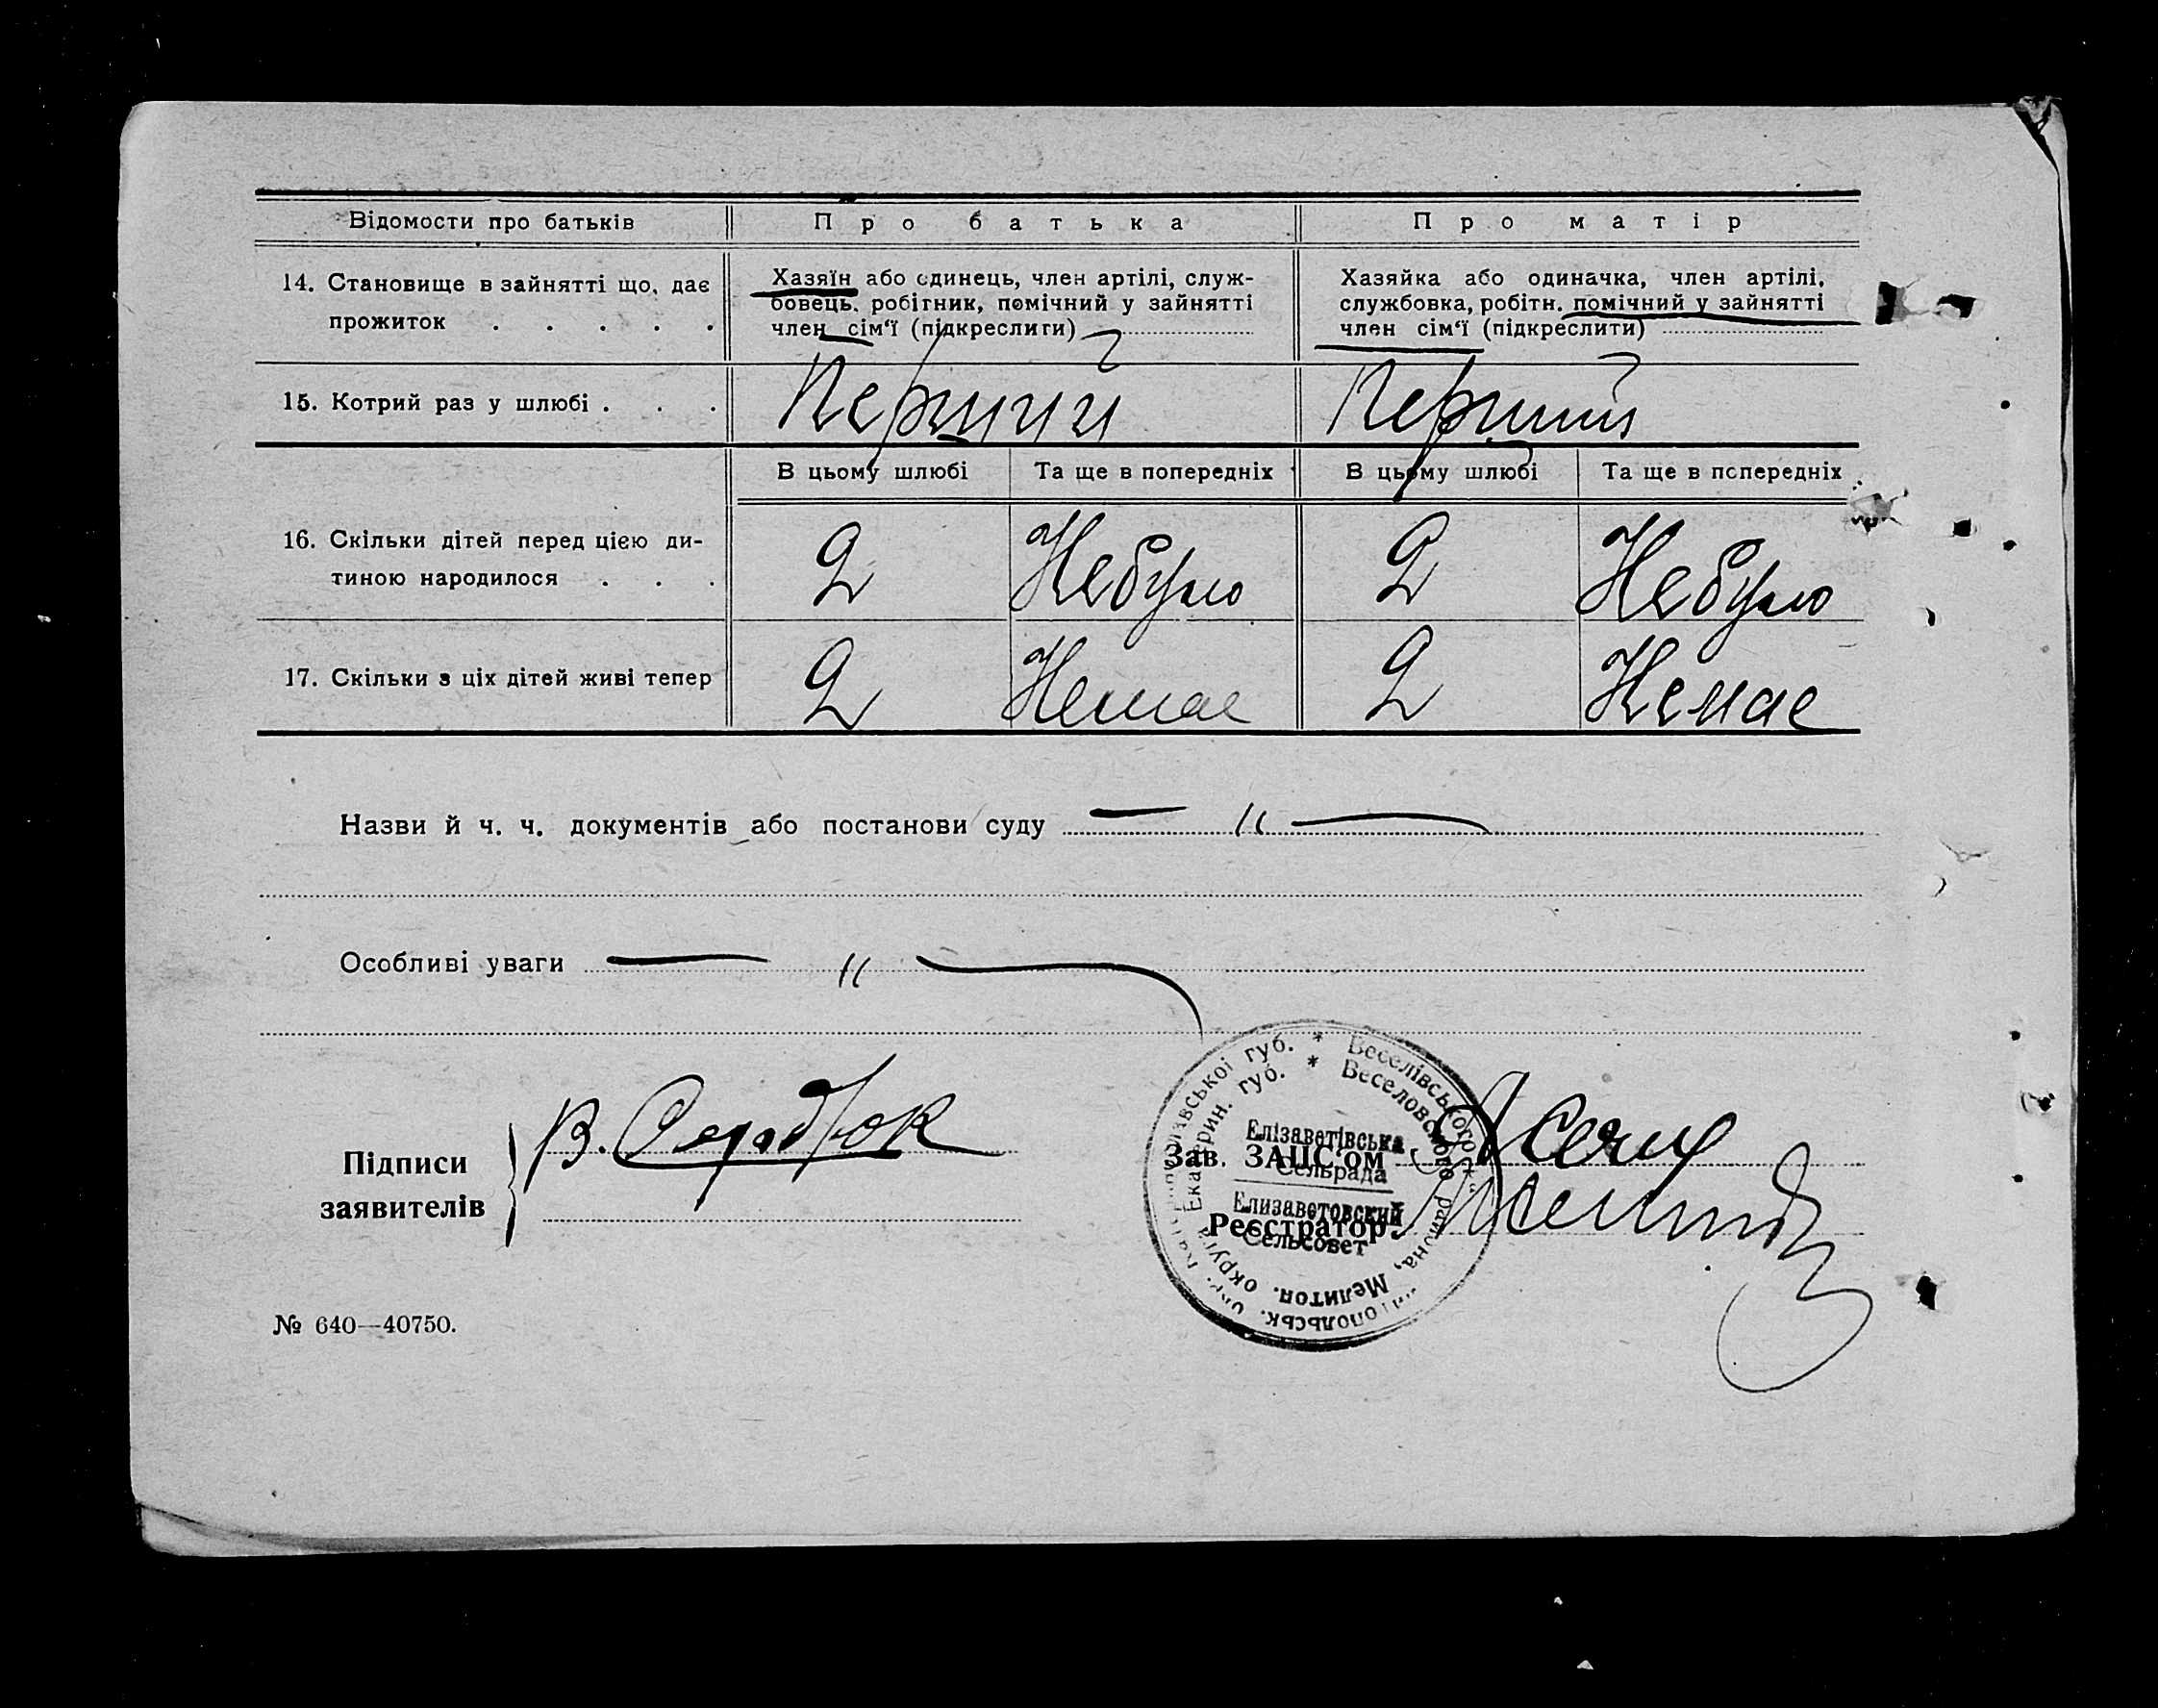 Відомости про батьків
Про батька
Про матір
14. Становище в зайнятті що, дає
прожиток . . . . .
Хазяїн або одинець, член артілі, служ-
бовець, робітник, помічний у зайнятті
член сім'ї (підкреслити)
Хазяйка або одиначка, член артілі,
службовка, робітн. помічний у зайнятті
член сім'ї (підкреслити)
15. Котрий раз у шлюбі . . .
Перший
Перший
В цьому шлюбі
Та ще в попередніх
В цьому шлюбі
Та ще в попередніх
16. Скільки дітей перед цією ди-
тиною народилося . . .
2
Небуло
2
Небуло
17. Скільки з ціх дітей живі тепер
2
Немає
2
Немає
Назви й ч. ч. документів або постанови суду — " —
Особливі уваги — " —
Підписи
заявителів
В. Сердюк
Зав. ЗАЦС'ом
Реєстратор
Веселівського
Веселовского района, Мелитоп. округа Екатерин. губ.
Елізаветівська
Сельрада
Елизаветовский
Сельсовет
№ 640—40750.